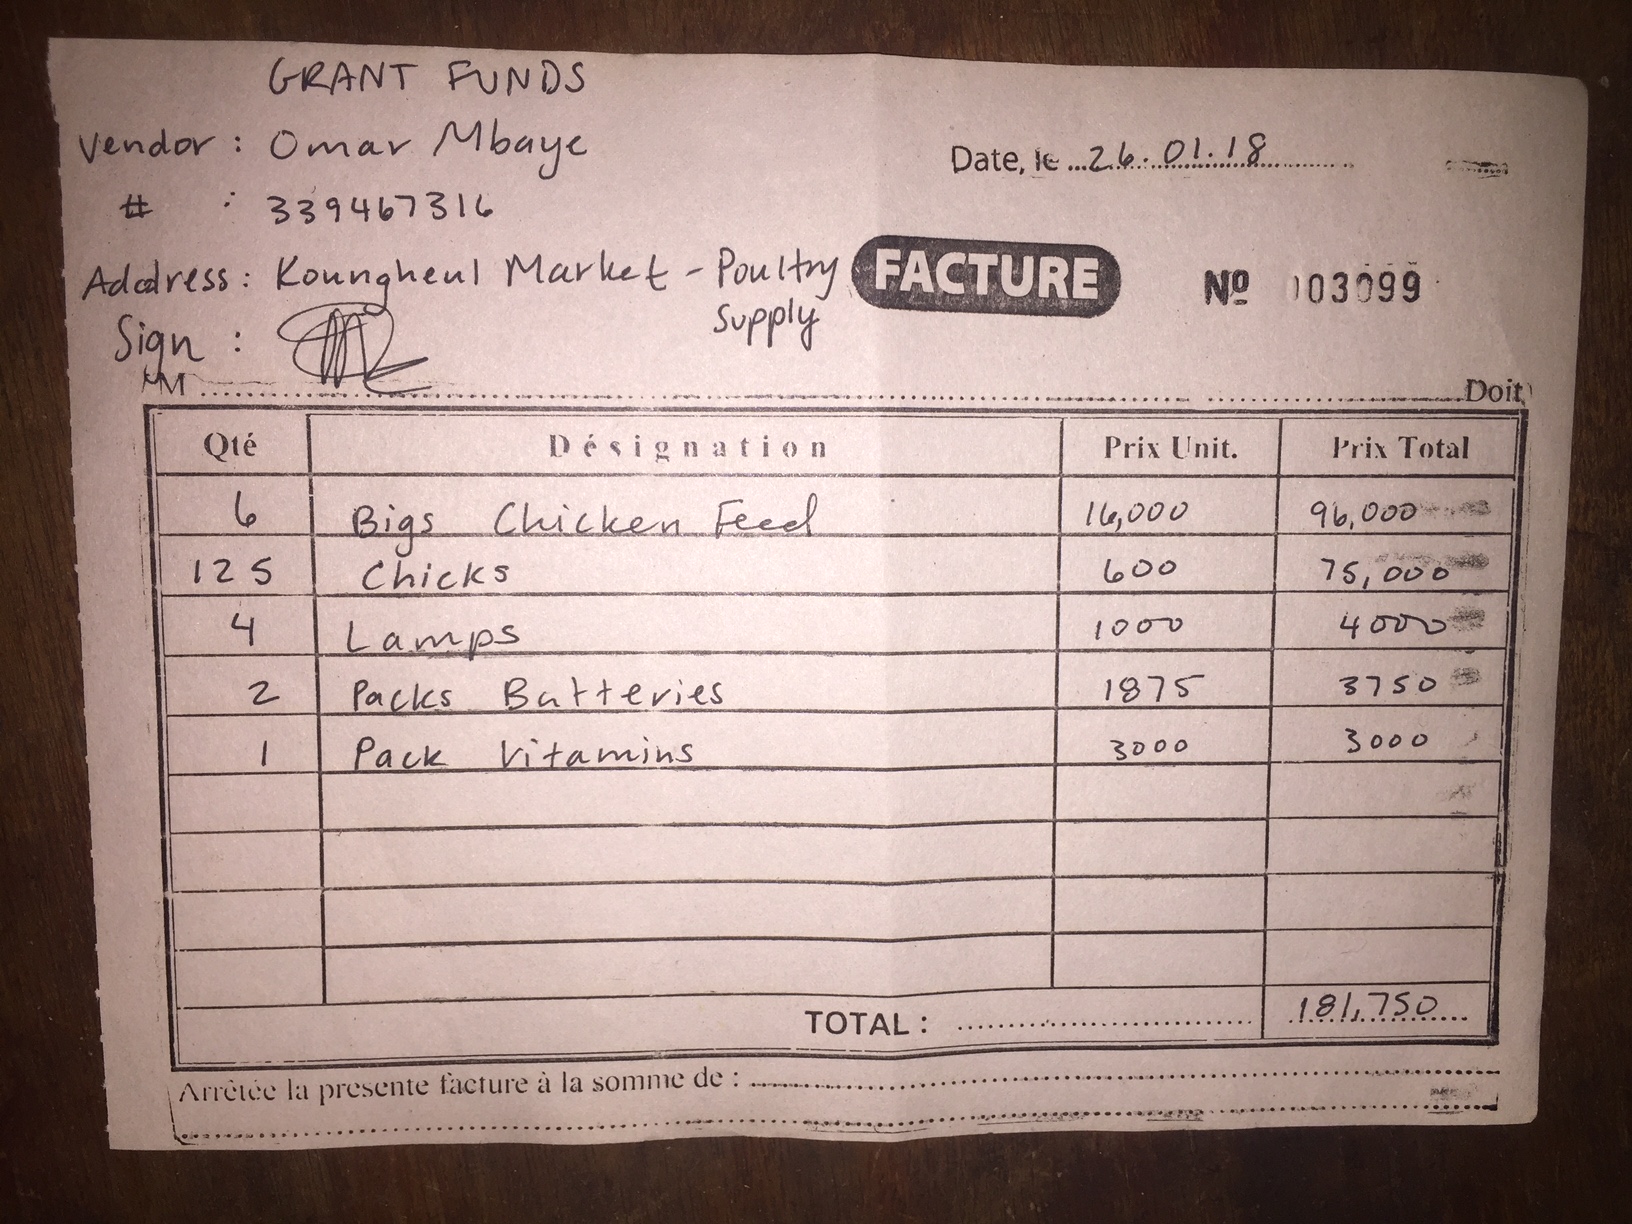 GRANT FUNDS
Vendor: Omar Mbaye
Date, le ...26.01.18
# : 339467316
Address: Koungheul Market - Poultry Supply
FACTURE
Nº 003099
Sign :
M Doit
Qté Désignation Prix Unit. Prix Total
6 Bigs Chicken Feed 16,000 96,000
125 Chicks 600 75,000
4 Lamps 1000 4000
2 Packs Batteries 1875 3750
1 Pack Vitamins 3000 3000
TOTAL : 181,750
Arrêtée la presente facture à la somme de :